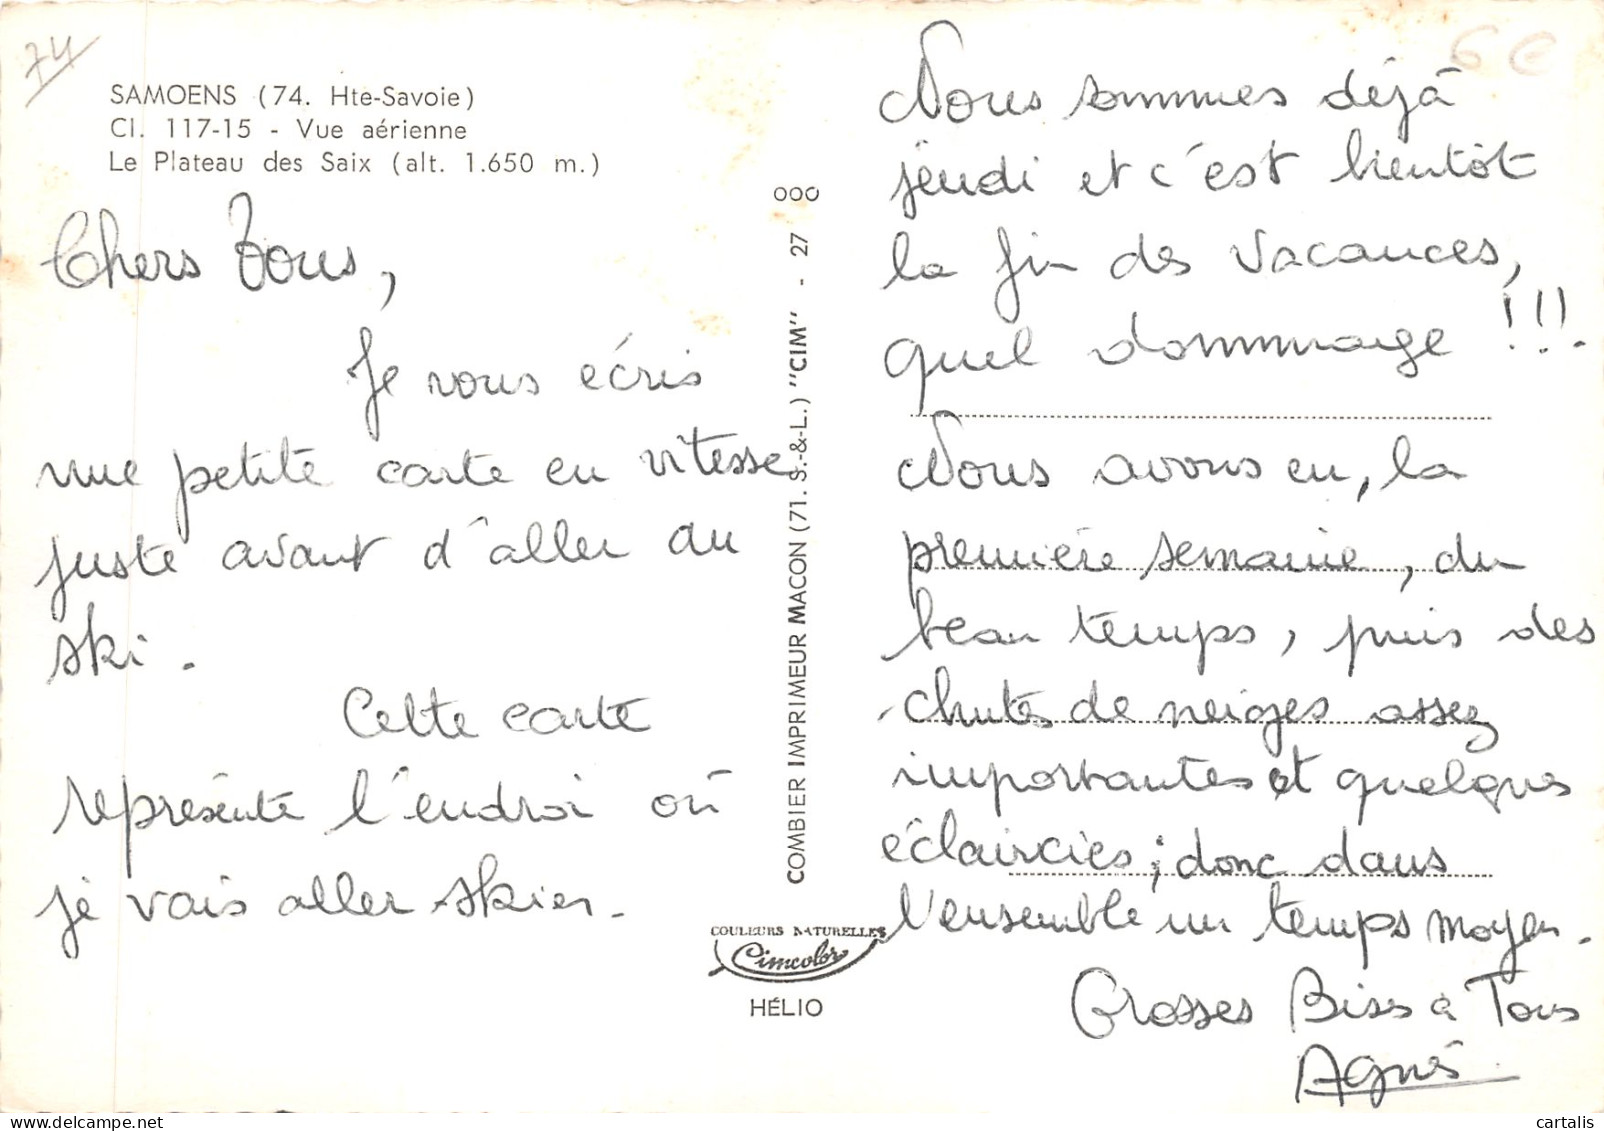 74
SAMOENS (74. Hte-Savoie)
Cl. 117-15 - Vue aérienne
Le Plateau des Saix (alt. 1.650 m.)
Chers Tous,
Je vous écris
une petite carte en vitesse
juste avant d'aller au
ski.
Cette carte
représente l'endroi où
je vais aller skier.
COMBIER IMPRIMEUR MACON (71. S.-&-L.) "CIM" - 27 000
COULEURS NATURELLES
Cimcolor
HÉLIO
6 €
Nous sommes déjà
jeudi et c'est bientôt
la fin des vacances,
quel dommage !!!
Nous avons eu, la
première semaine, du
beau temps, puis des
chutes de neiges assez
importantes et quelques
éclaircies; donc dans
l'ensemble un temps moyen.
Grosses Biss à Tous
Agnès
cartalis